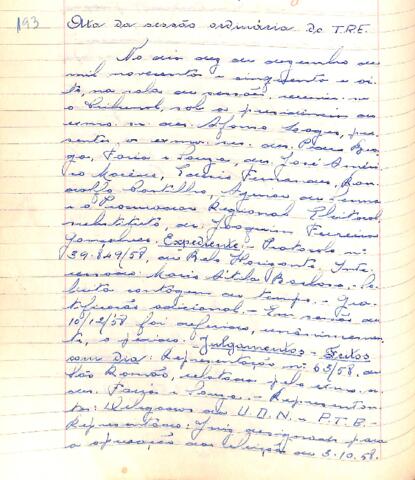 193
Ata da sessão ordinária do T.R.E.
No dia dez de dezembro de
mil novecentos e cinquenta e oi-
to, na sala de sessões, reuniu-se
o Tribunal, sob a presidência do
exmo. sr. des. Afonso Lages, pre-
sentes os exmos. srs. des. Pedro Bra-
ga, Faria e Souza, drs. José Améri-
co Macêdo, Fernandes,
Castilho, de Senna
e o Procurador Regional Eleitoral
substituto, dr. Joaquim Ferreira
Gonçalves. Expediente - Protocolo nº
39.849/58, de Belo Horizonte. Inte-
ressado: Maria Barbosa.
contagem de tempo. - Gra-
tificação adicional. - Em sessão de
10/12/58 foi deferido, unânimemen-
te, o pedido. - Julgamentos - Feitos
com Dia: Representação nº 63/58, de
São Romão, relatada pelo exmo. sr.
des. Faria e Souza. - Representan-
tes: Delegados da U.D.N. e P.T.B. -
Representado: Juiz designado para
a apuração da eleição de 3.10.58.